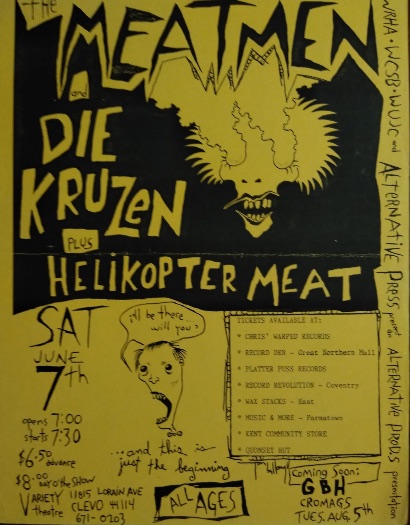 the
MEATMEN
and
DIE
KRUZEN
PLUS
HELIKOPTER MEAT
SAT
JUNE
7th
opens 7:00
starts 7:30
$6.50 advance
$8.00 day of the SHOW
VARIETY theatre
11815 LORAIN AVE
CLEVO 44114
671-0203
i'll be there...
will you?
...and this is
just the beginning
ALL AGES
TICKETS AVAILABLE AT:
* CHRIS' WARPED RECORDS
* RECORD DEN - Great Northern Mall
* PLATTER PUSS RECORDS
* RECORD REVOLUTION - Coventry
* WAX STACKS - East
* MUSIC & MORE - Parmatown
* KENT COMMUNITY STORE
* QUONSET HUT
Coming Soon:
GBH
CROMAGS
TUES. AUG. 5th
WRHA • WCSB • WUJC and ALTERNATIVE PRESS present an ALTERNATIVE PRODUS presentation